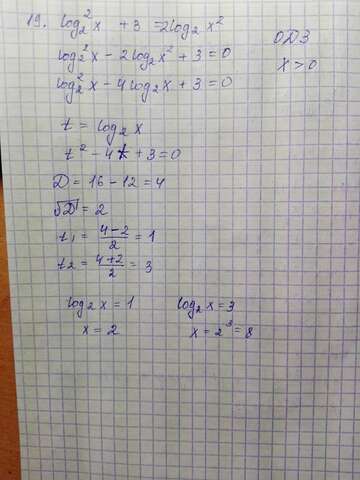 19. log₂²x + 3 = 2log₂x²
ОДЗ
log₂²x - 2log₂x² + 3 = 0
x > 0
log₂²x - 4log₂x + 3 = 0
t = log₂x
t² - 4t + 3 = 0
D = 16 - 12 = 4
√D = 2
t₁ = (4-2)/2 = 1
t₂ = (4+2)/2 = 3
log₂x = 1 log₂x = 3
x = 2 x = 2³ = 8